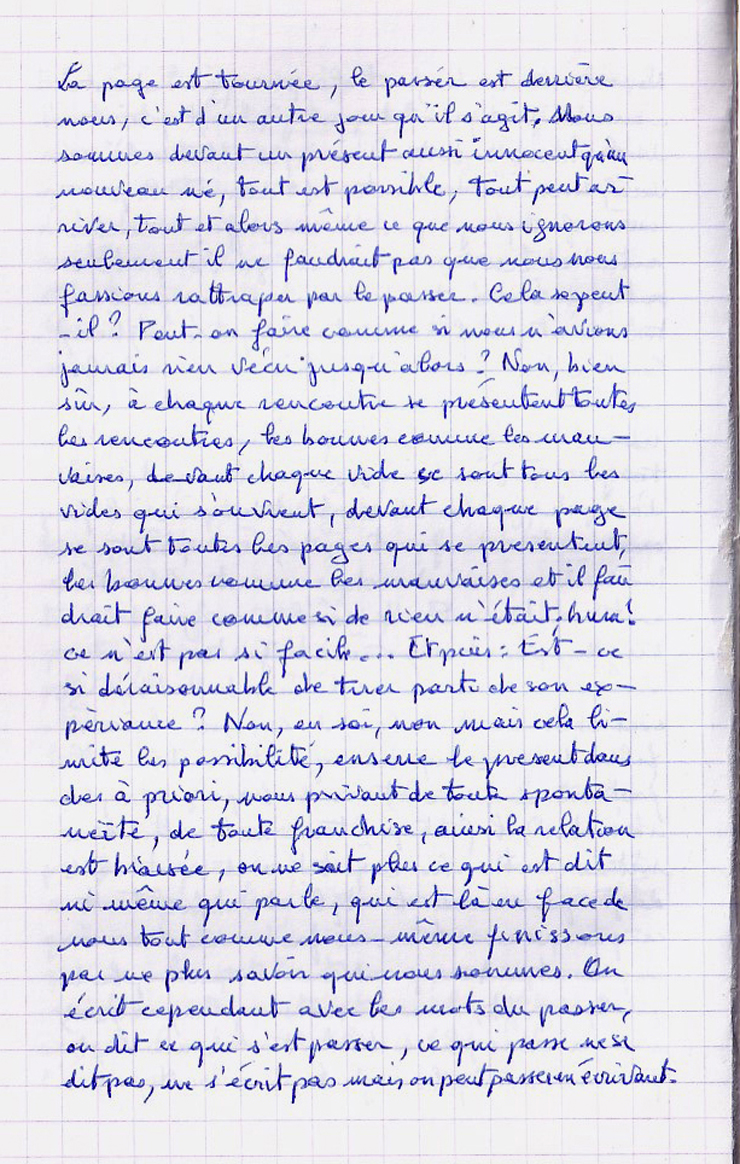 La page est tournée, le passér est derrière
nous, c'est d'un autre jour qu'il s'agit. Nous
sommes devant un présent aussi innocent qu'un
nouveau né, tout est possible, tout peut ar
river, tout et alors même ce que nous ignorons
seulement il ne faudrait pas que nous nous
fassions rattraper par le passer. Cela se peut
-il ? Peut-on faire comme si nous n'avions
jamais rien vécu jusqu'alors ? Non, bien
sûr, à chaque rencontre se présentent toutes
les rencontres, les bonnes comme les mau-
vaises, devant chaque vide se sont tous les
vides qui s'ouvrent, devant chaque page
se sont toutes les pages qui se presentent,
les bonnes comme les mauvaises et il fau
drait faire comme si de rien n'était, hum!
ce n'est pas si facile... Et puis : Est-ce
si déraisonnable de tirer parti de son ex-
périance ? Non, en soi, non mais cela li-
mite les possibilité, enserre le present dans
des à priori, nous privant de toute sponta-
neïté, de toute franchise, ainsi la relation
est biaisée, on ne sait plus ce qui est dit
ni même qui parle, qui est là en face de
nous tout comme nous-même finissons
par ne plus savoir qui nous sommes. On
écrit cependant avec les mots du passer,
on dit ce qui s'est passer, ce qui passe ne se
dit pas, ne s'écrit pas mais on peut passer en écrivant.